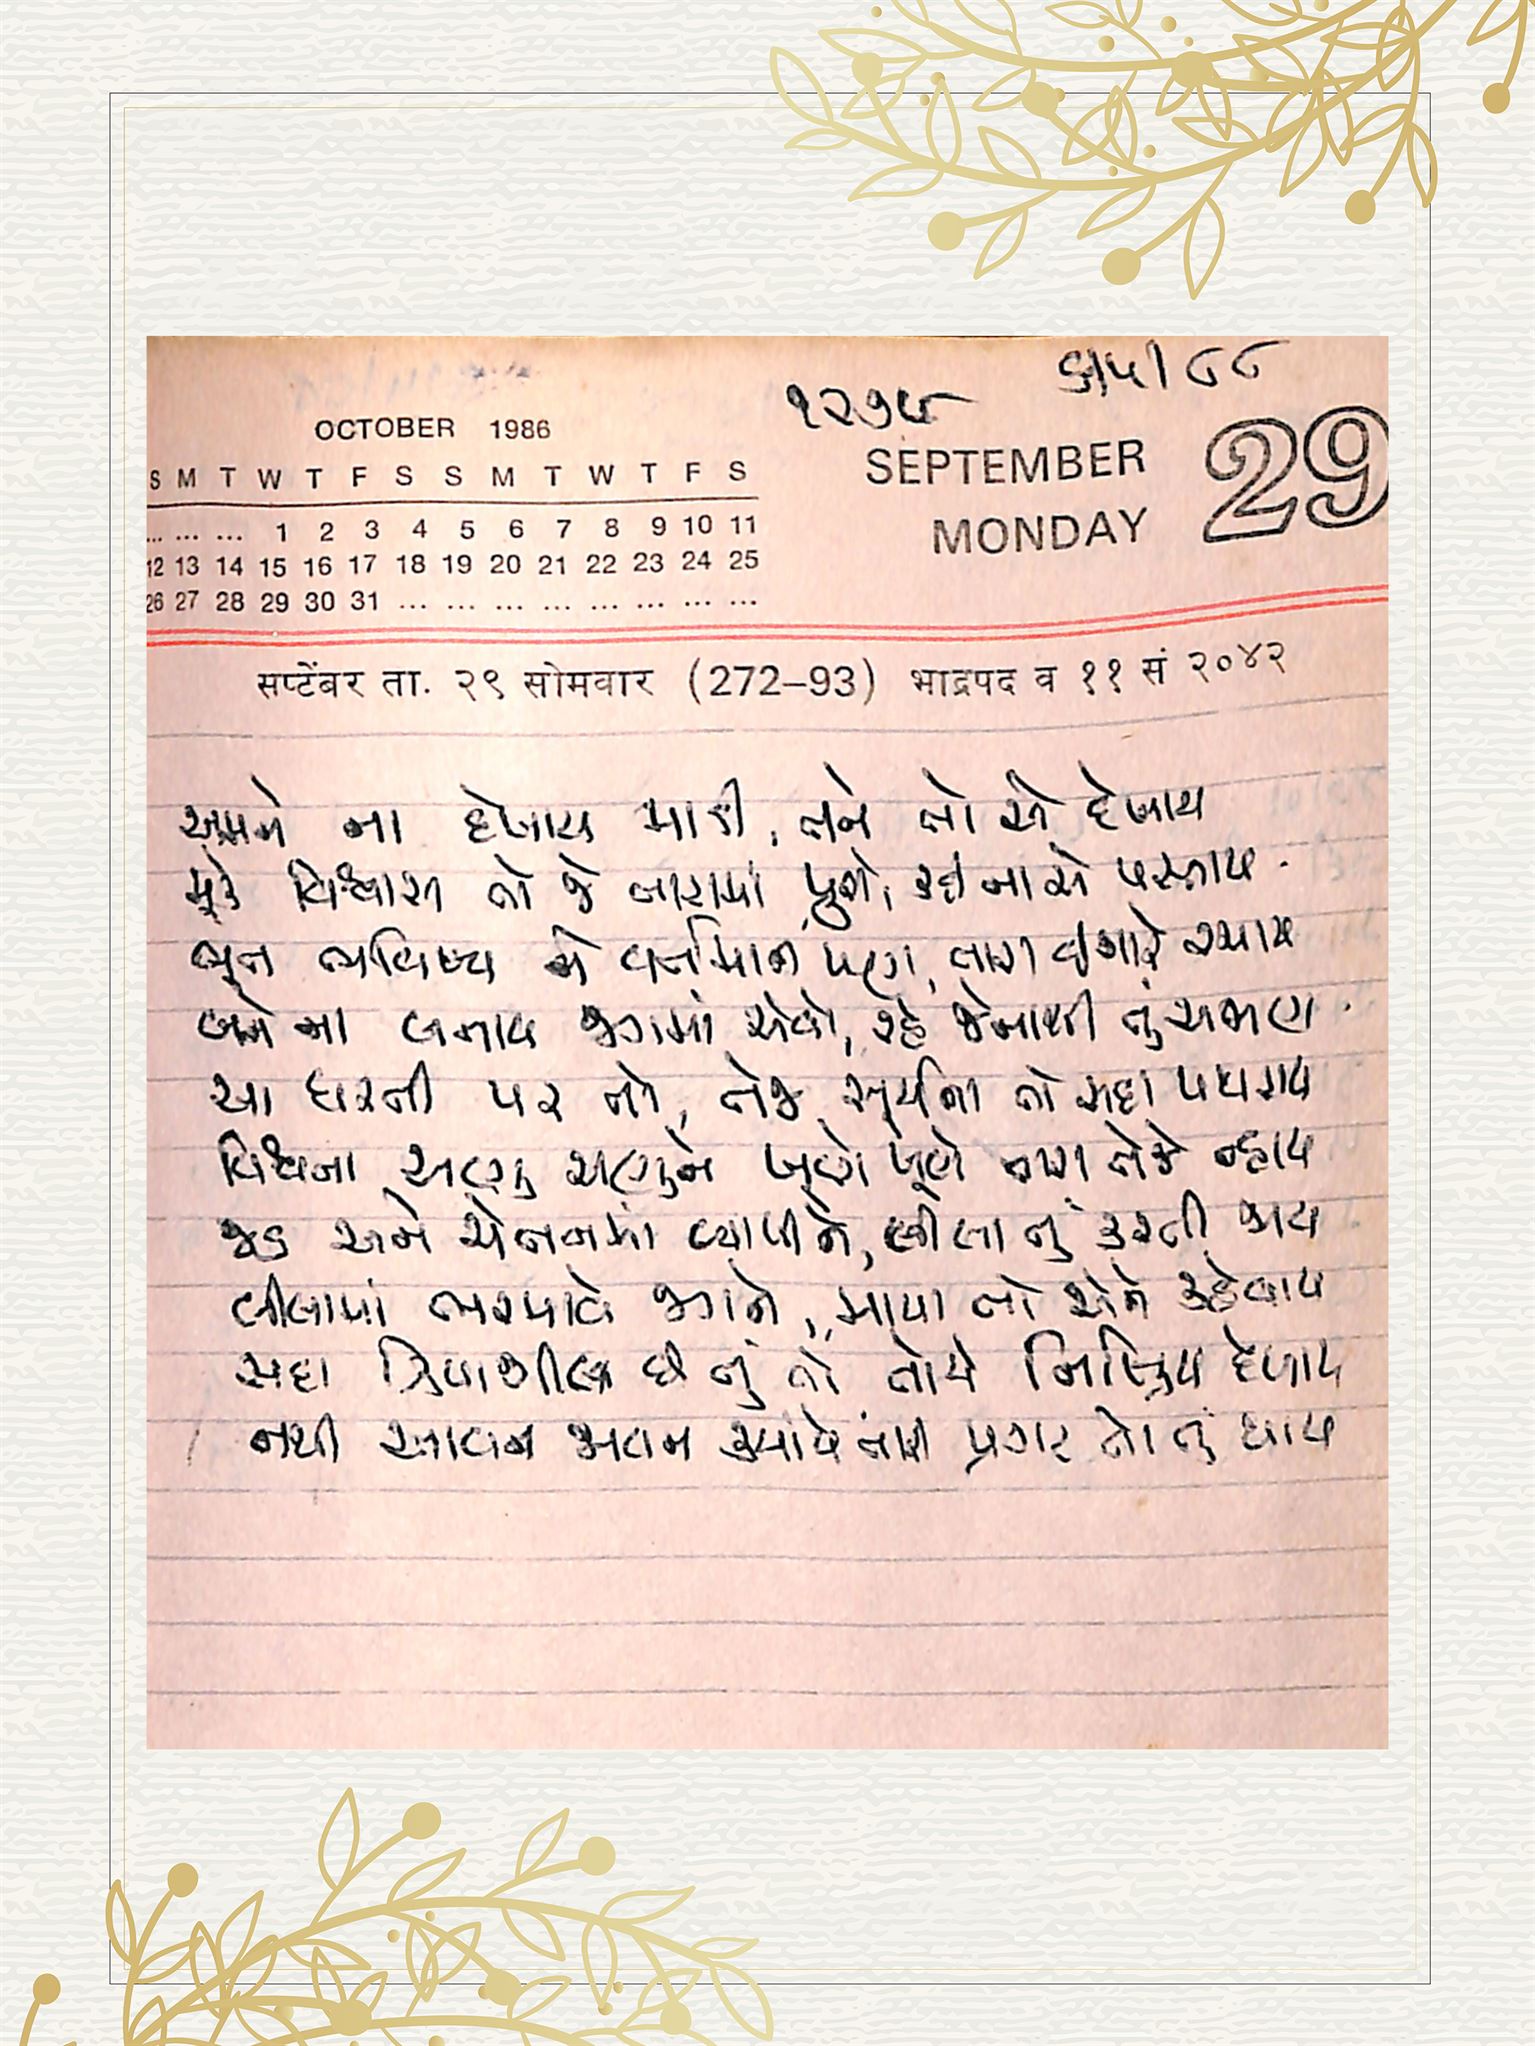 ૬/૫/૮૮
૧૨૭૫
OCTOBER 1986
SEPTEMBER 29
S M T W T F S S M T W T F S
MONDAY
... ... ... 1 2 3 4 5 6 7 8 9 10 11
12 13 14 15 16 17 18 19 20 21 22 23 24 25
26 27 28 29 30 31 ... ... ... ... ... ... ... ...
सप्टेंबर ता. २९ सोमवार (272–93) भाद्रपद व ११ सं २०४२
અમને ના દેખાય માડી, તને તો એ દેખાય
મૂકે વિશ્વાસ તો જે તારામાં પૂરો, કદી ના એ પસ્તાય
ભૂત ભવિષ્ય ને વર્તમાન પણ, તારા ઇશારે રચાય
બને ના બનાવ જગમાં એવો, રહે જેનાથી તું અજાણ
આ ધરતી પર તો, તેજ સૂર્યના તો સદા પથરાય
વિશ્વના અણુ અણુને ખૂણે ખૂણે તારા તેજે ન્હાય
જડ અને ચેતનમાં વ્યાપીને, લીલા તું કરતી જાય
લીલામાં ભરમાવે જગને, માયા તો એને કહેવાય
સદા ક્રિયાશીલ છે તું તો તોયે નિષ્ક્રિય દેખાય
નથી આવન જાવન ક્યાંયે તારી પ્રગટ તો તું થાય